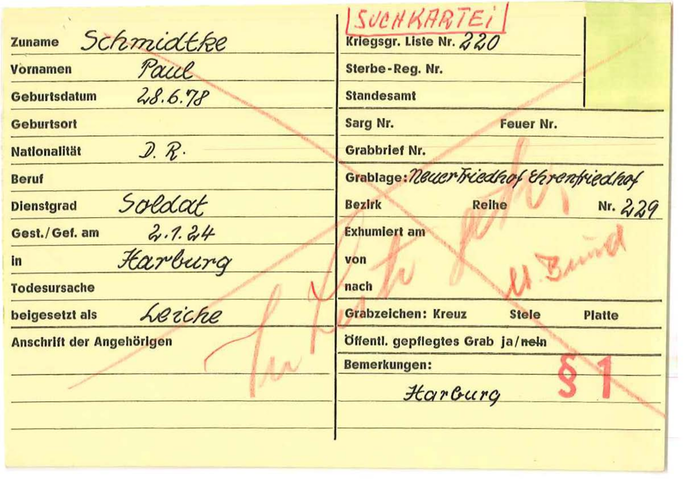 SUCHKARTEI
Zuname Schmidtke
Vornamen Paul
Geburtsdatum 28.6.78
Geburtsort
Nationalität D. R.
Beruf
Dienstgrad Soldat
Gest./Gef. am 2.1.24
in Harburg
Todesursache
beigesetzt als Leiche
Anschrift der Angehörigen
Kriegsgr. Liste Nr. 220
Sterbe-Reg. Nr.
Standesamt
Sarg Nr. Feuer Nr.
Grabbrief Nr.
Grablage: Neuer Friedhof Ehrenfriedhof
Bezirk Reihe Nr. 229
Exhumiert am
von
nach
Grabzeichen: Kreuz Stele Platte
Öffentl. gepflegtes Grab ja/nein
Bemerkungen:
Harburg
§ 1
In